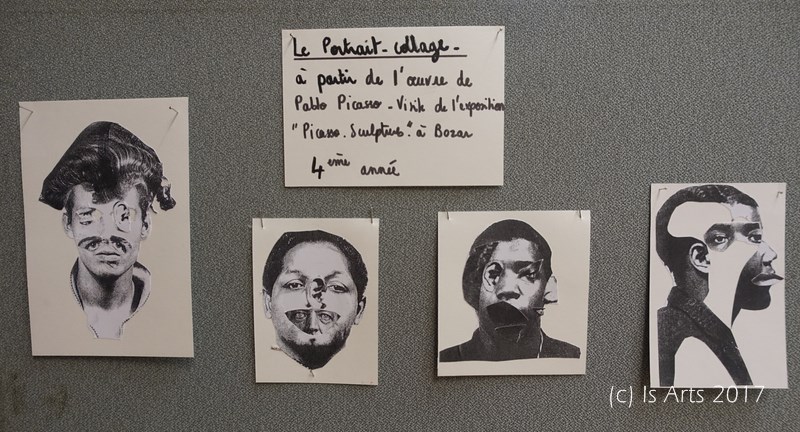 Le Portrait-collage-
à partir de l'œuvre de
Pablo Picasso - Visite de l'exposition
"Picasso. Sculptures." à Bozar
4ème année
(c) Is Arts 2017